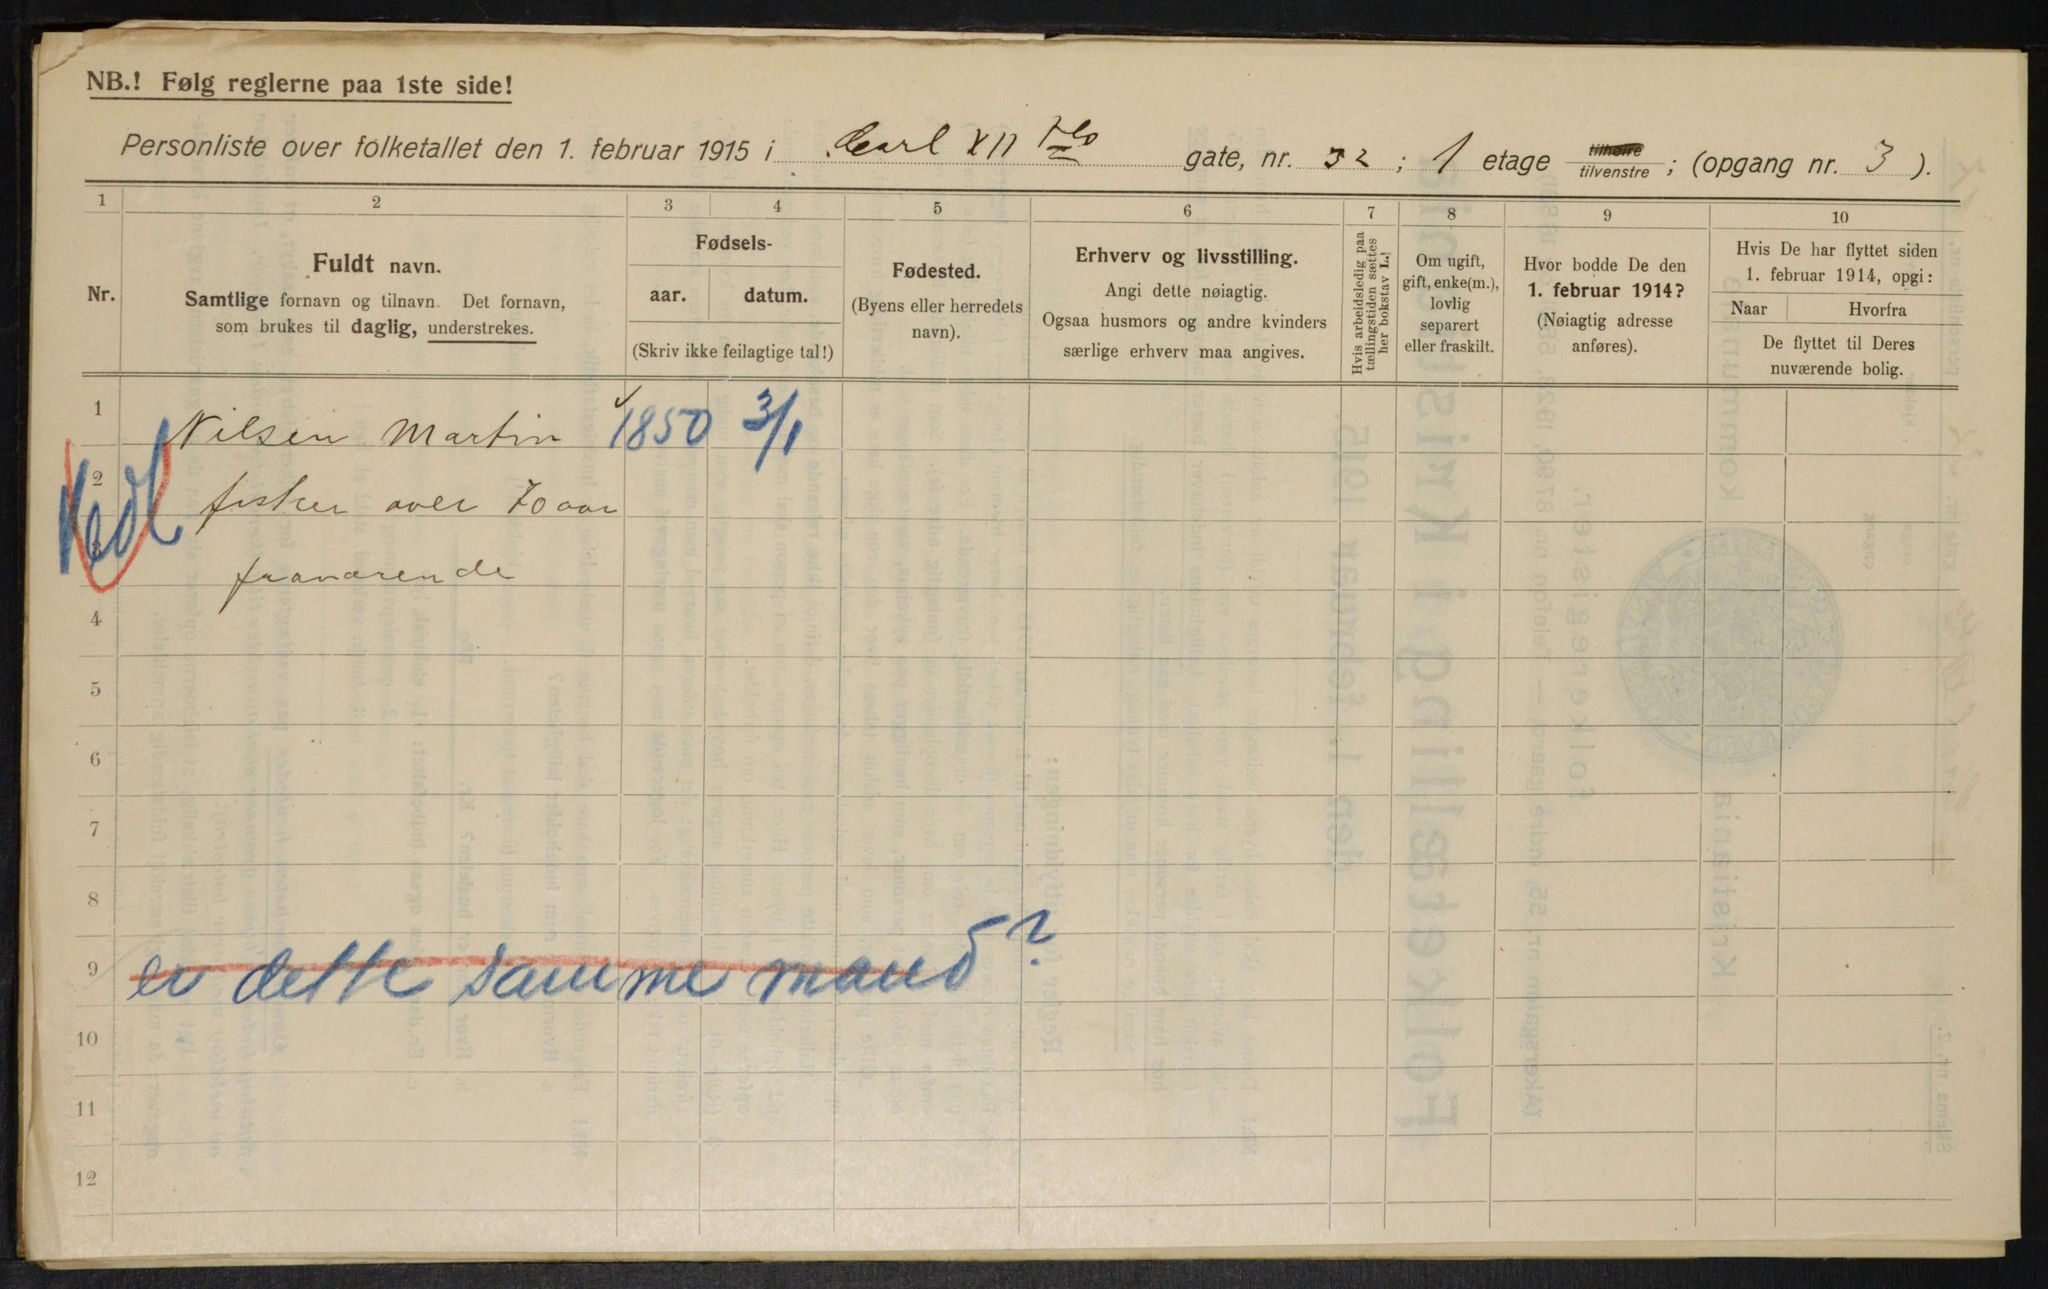 NB.! Følg reglerne paa 1ste side!
Personliste over folketallet den 1. februar 1915 i Carl XII gate, nr. 32; 1 etage tilhøire tilvenstre; (opgang nr. 3).
1 2 3 4 5 6 7 8 9 10
Nr.
Fuldt navn.
Samtlige fornavn og tilnavn. Det fornavn,
som brukes til daglig, understrekes.
Fødsels-
aar. datum.
(Skriv ikke feilagtige tal!)
Fødested.
(Byens eller herredets
navn).
Erhverv og livsstilling.
Angi dette nøiagtig.
Ogsaa husmors og andre kvinders
særlige erhverv maa angives.
Hvis arbeidsledig paa
tællingstiden sættes
her bokstav L.!
Om ugift,
gift, enke(m.),
lovlig
separert
eller fraskilt.
Hvor bodde De den
1. februar 1914?
(Nøiagtig adresse
anføres).
Hvis De har flyttet siden
1. februar 1914, opgi:
Naar Hvorfra
De flyttet til Deres
nuværende bolig.
1 Nilsen Martin 1850 3/1
2 fisker over 70 aar
3 fraværende
4
5
6
7
8
9 er dette samme mand?
10
11
12